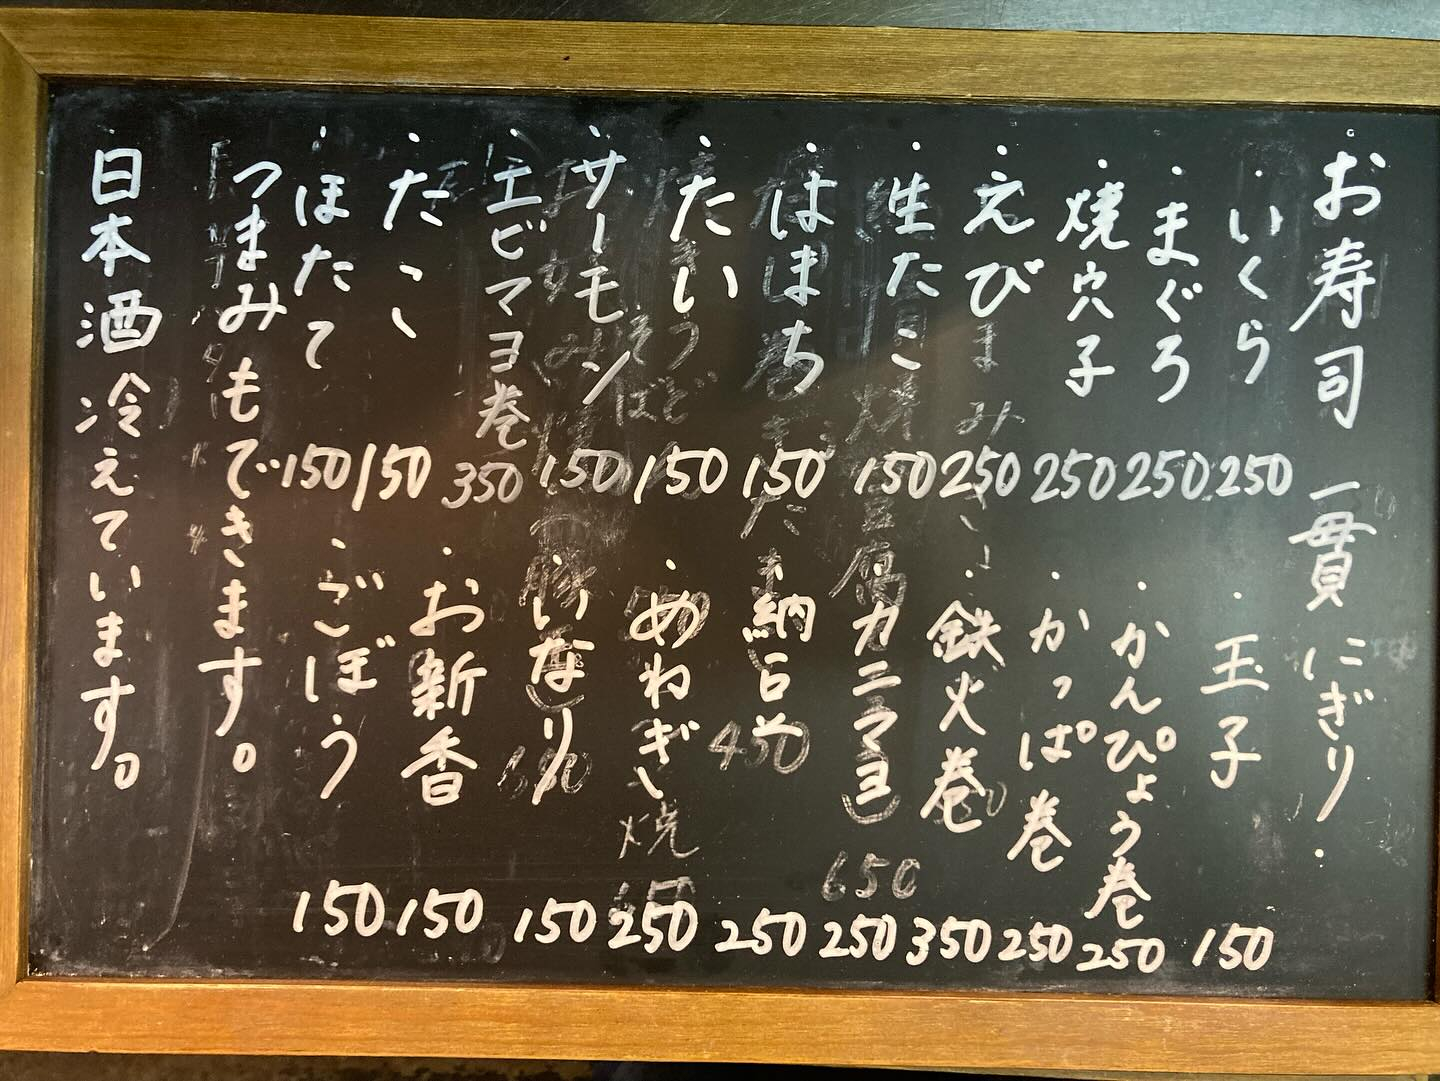 お寿司 一貫 にぎり
・いくら 250
・まぐろ 250
・焼穴子 250
・えび 250
・生たこ 150
・はまち 150
・たい 150
・サーモン 150
・エビマヨ巻 350
・たこ 150
・ほたて 150
・玉子 150
・かんぴょう巻 250
・かっぱ巻 250
・鉄火巻 350
カニマヨ 250
納豆 250
・めねぎ 250
・いなり 150
・お新香 150
・ごぼう 150
つまみもできます。
・日本酒冷えています。